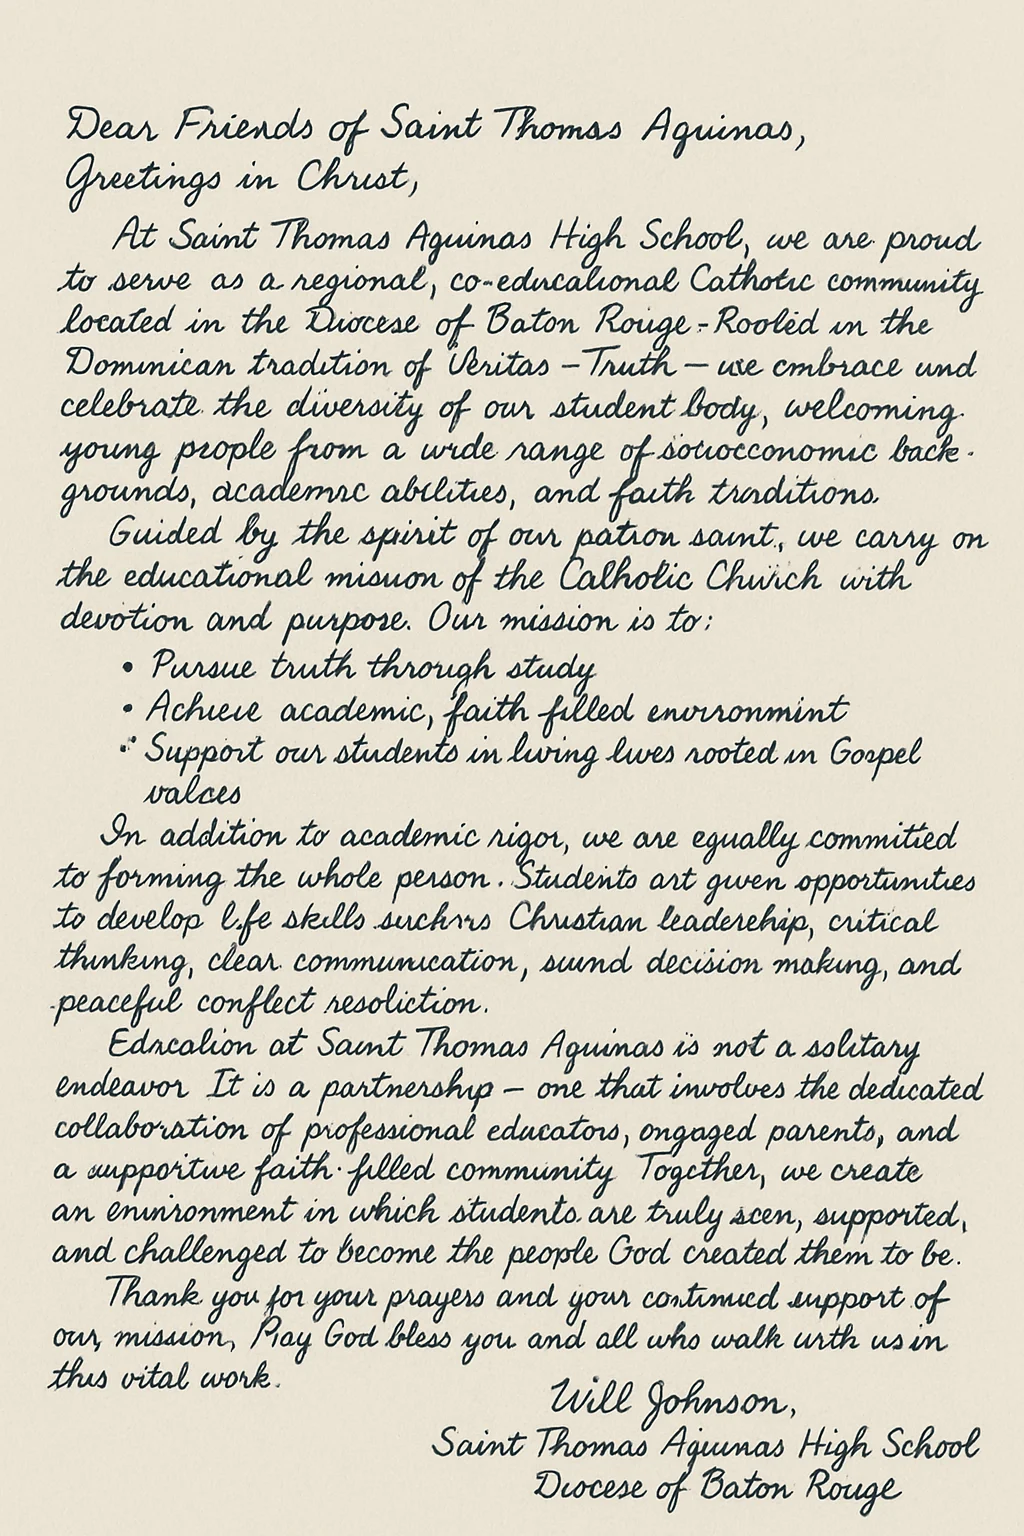 Dear Friends of Saint Thomas Aquinas,
Greetings in Christ,
At Saint Thomas Aquinas High School, we are proud
to serve as a regional, co-educational Catholic community
located in the Diocese of Baton Rouge - Rooted in the
Dominican tradition of Veritas – Truth – we embrace und
celebrate the diversity of our student body, welcoming
young people from a wide range of socioeconomic back-
grounds, academic abilities, and faith traditions.
Guided by the spirit of our patron saint, we carry on
the educational mission of the Catholic Church with
devotion and purpose. Our mission is to:
• Pursue truth through study
• Achieve academic, faith filled environmint
• Support our students in living lives rooted in Gospel
valces
In addition to academic rigor, we are equally committed
to forming the whole person. Students art given opportunities
to develop life skills such as Christian leaderehip, critical
thinking, clear communication, suund decision making, and
peaceful conflect resoliction.
Education at Saint Thomas Aquinas is not a solitary
endeavor It is a partnership – one that involves the dedicated
collaboration of professional educators, ongaged parents, and
a supportive faith-filled community Together, we create
an eninronment in which students are truly seen, supported,
and challenged to become the people God created them to be.
Thank you for your prayers and your continued support of
our, mission, Play God bless you and all who walk with us in
this vital work.
Will Johnson,
Saint Thomas Aquinas High School
Diocese of Baton Rouge